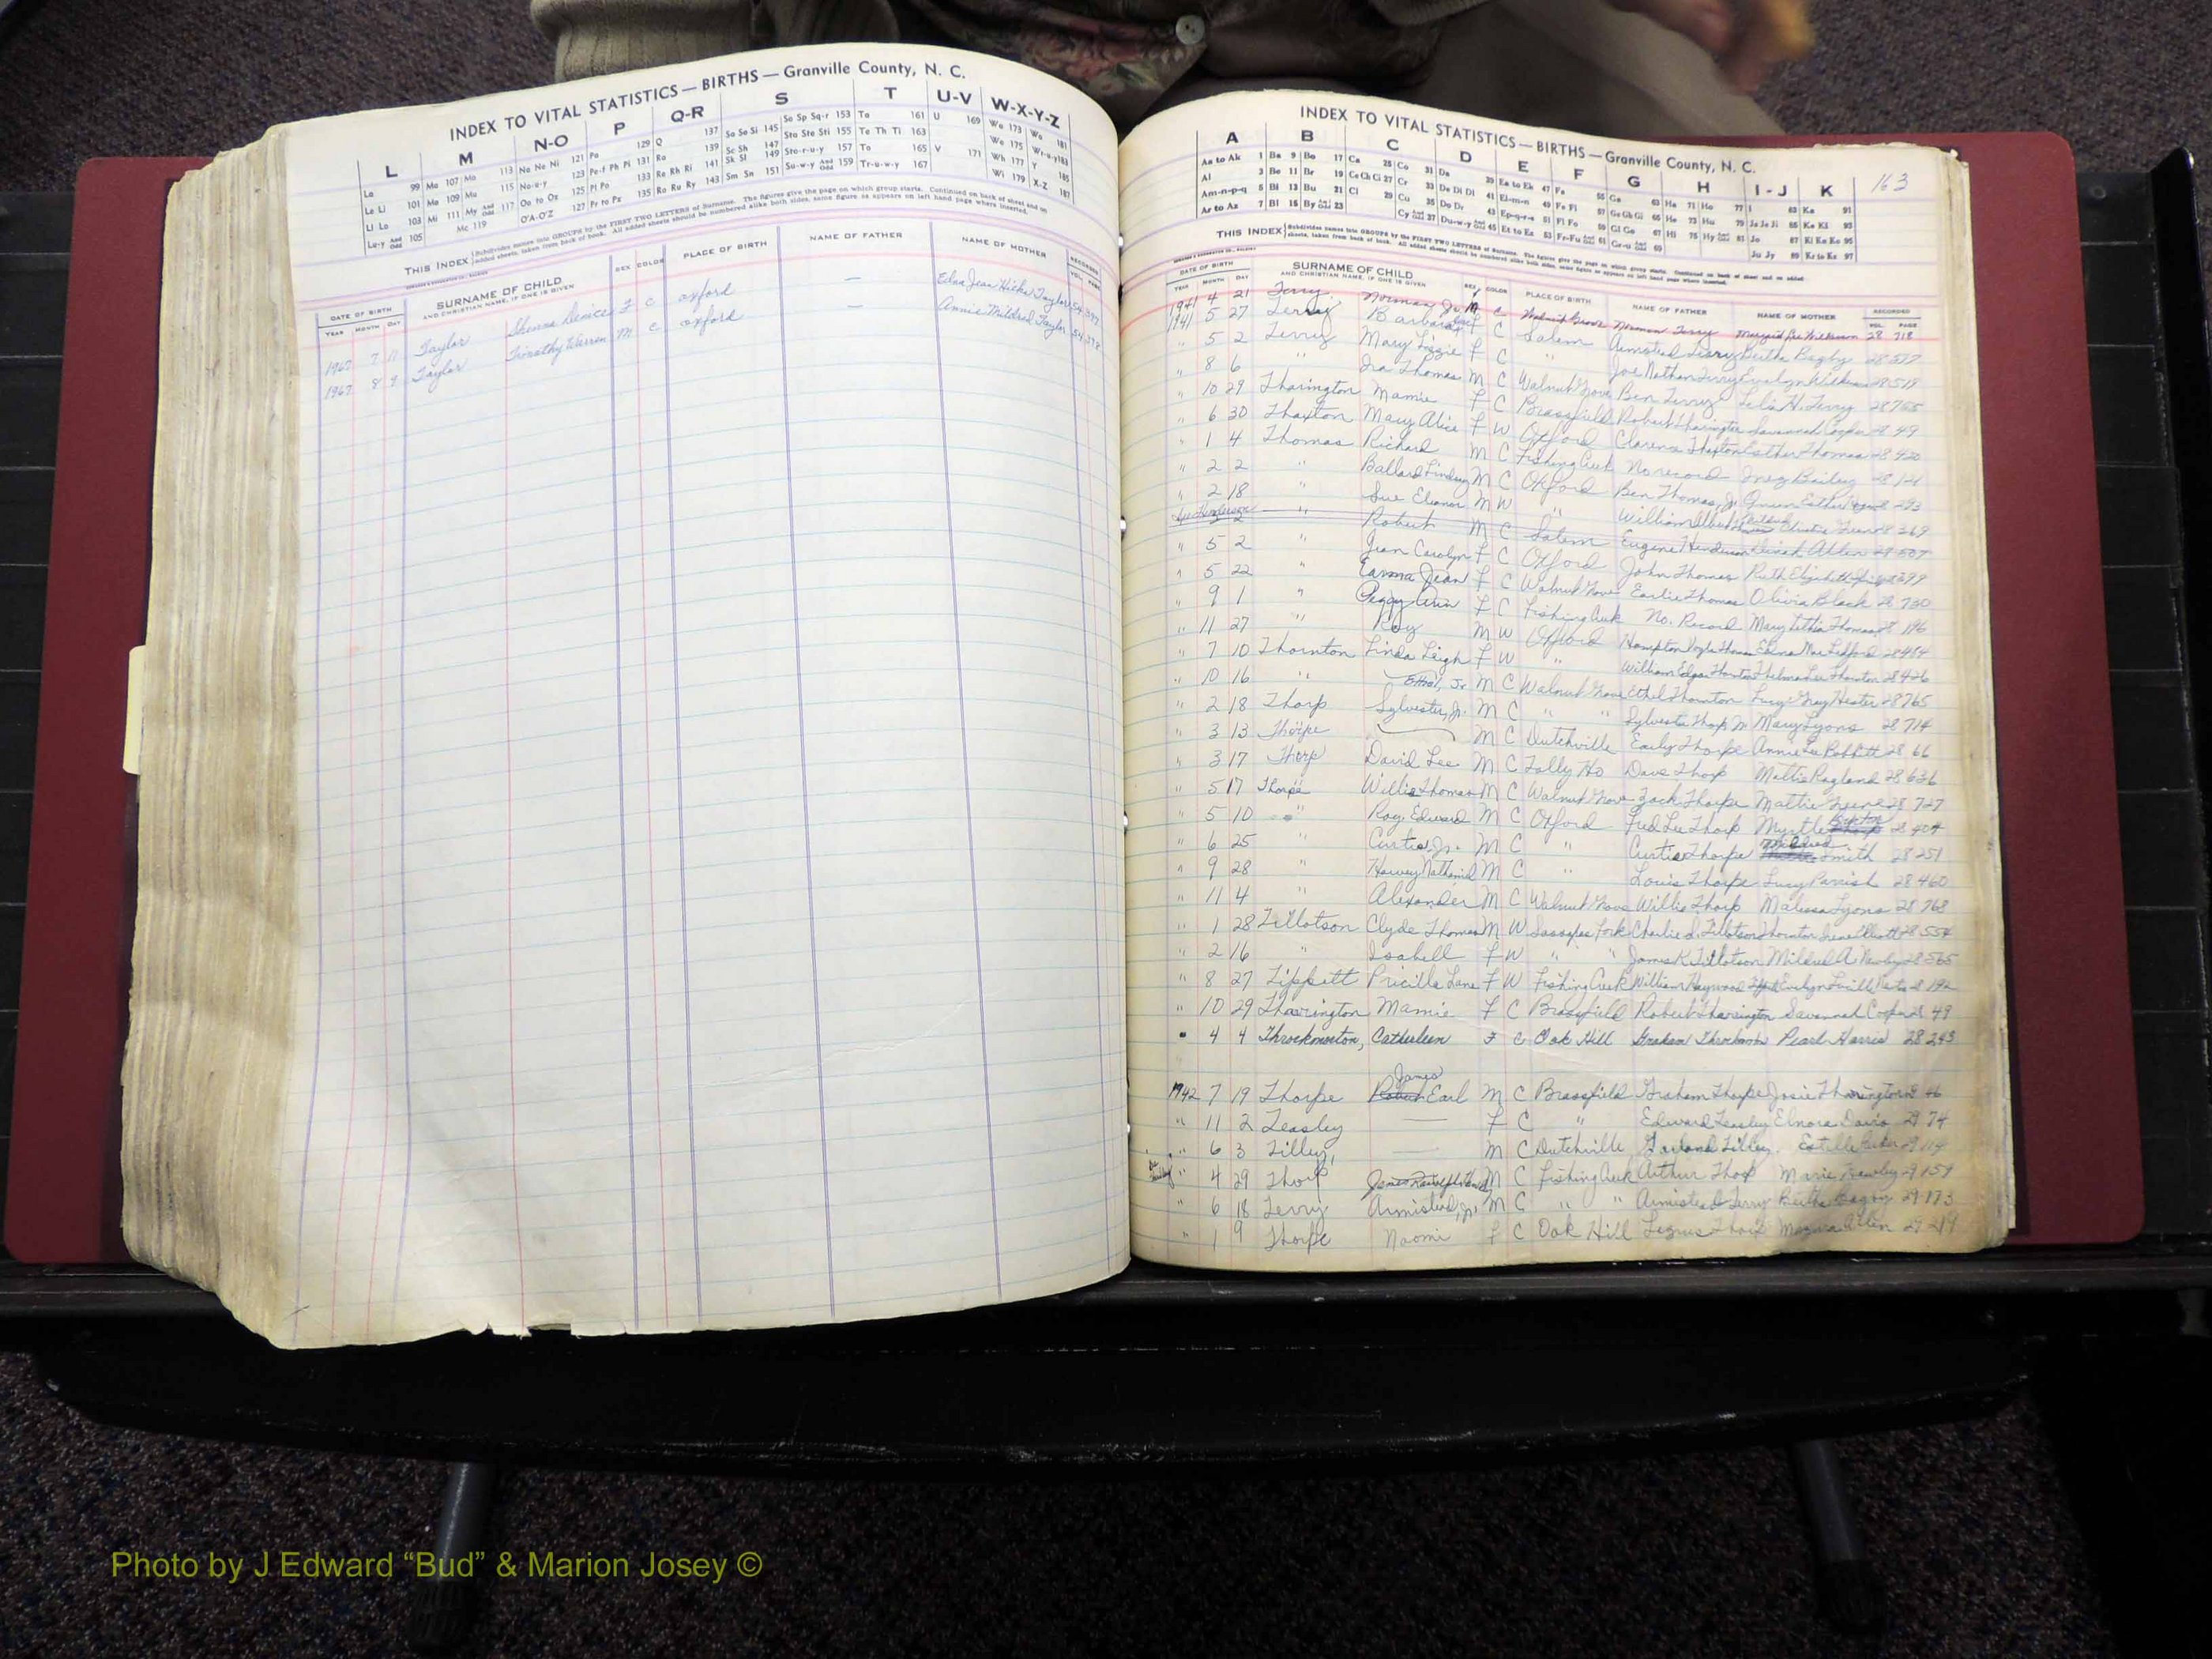 INDEX TO VITAL STATISTICS — BIRTHS — Granville County, N. C.
L M N-O P Q-R S T U-V W-X-Y-Z
La 99 Ma 107 Mo 113 Na Ne Ni 121 Pa 129 Q 137 Sa Se Si 145 So Sp Sq-r 153 Ta 161 U 169 Wa 173 Wo 181
Le Li 101 Me 109 Mu 115 No-u-y 123 Pe-f Ph Pi 131 Ra 139 Sc Sh 147 Sta Ste Sti 155 Te Th Ti 163 We 175 Wr-u-y 183
Li Lo 103 Mi 111 My And Odd 117 Oa to Oz 125 Pl Po 133 Re Rh Ri 141 Sk Sl 149 Sto-r-u-y 157 To 165 V 171 Wh 177 Y 185
Lu-y And Odd 105 Mc 119 O'A-O'Z 127 Pr to Px 135 Ro Ru Ry 143 Sm Sn 151 Su-w-y And Odd 159 Tr-u-w-y 167 Wi 179 X-Z 187
THIS INDEX Subdivides names into GROUPS by the FIRST TWO LETTERS of Surname. The figures give the page on which group starts. Continued on back of sheet and on
added sheets, taken from back of book. All added sheets should be numbered alike both sides, same figure as appears on left hand page where inserted.
DATE OF BIRTH SURNAME OF CHILD SEX COLOR PLACE OF BIRTH NAME OF FATHER NAME OF MOTHER RECORDED
YEAR MONTH DAY AND CHRISTIAN NAME, IF ONE IS GIVEN VOL. PAGE
1967 7 11 Taylor Denice F C oxford — Edna Jean Hicks Taylor 54
1967 8 9 Taylor Timothy Warren M C oxford — Annie Mildred Taylor 54
INDEX TO VITAL STATISTICS — BIRTHS — Granville County, N. C.
A B C D E F G H I - J K 163
Aa to Ak 1 Ba 9 Bo 17 Ca 25 Co 31 Da 39 Ea to Ek 47 Fa 55 Ga 63 Ha 71 Ho 77 I 83 Ka 91
Al 3 Be 11 Br 19 Ce Ch Ci 27 Cr 33 De Di Dl 41 El-m-n 49 Fe Fi 57 Ge Gh Gi 65 He 73 Hu 79 Ja Je Ji 85 Ke Kl 93
Am-n-p-q 5 Bi 13 Bu 21 Cl 29 Cu 35 Do Dr 43 Ep-q-r-s 51 Fl Fo 59 Gl Go 67 Hi 75 Hy And Odd 81 Jo 87 Ki Kn Ko 95
Ar to Az 7 Bl 15 By And Odd 23 Cy And Odd 37 Du-w-y And Odd 45 Et to Ez 53 Fr-Fu And Odd 61 Gr-u And Odd 69 Ju Jy 89 Kr to Kz 97
THIS INDEX Subdivides names into GROUPS by the FIRST TWO LETTERS of Surname. The figures give the page on which group starts. Continued on back of sheet and on added
sheets, taken from back of book. All added sheets should be numbered alike both sides, same figure as appears on left hand page where inserted.
DATE OF BIRTH SURNAME OF CHILD SEX COLOR PLACE OF BIRTH NAME OF FATHER NAME OF MOTHER RECORDED
YEAR MONTH DAY AND CHRISTIAN NAME, IF ONE IS GIVEN VOL. PAGE
1941 4 21 Terry Norman Jr. M C Walnut Grove Norman Terry Wilkerson 28 718
1941 5 27 Terry Barbara F C Salem Armstead Terry Bertha Bagby 28
" 5 2 Terry Mary Lizzie F C " Joe Nathan Terry Evelyn 28 518
" 8 6 " Ira Thomas M C Walnut Grove Ben Terry Lelia H. Terry 28 765
" 10 29 Tharington Mamie F C Brassfield Robert Tharington Savannah Cooper 28 49
" 6 30 Thaxton Mary Alice F W Oxford Clarence Thaxton Esther Thomas 28 420
" 1 4 Thomas Richard M C Fishing Creek No record Inez Bailey 28 121
" 2 2 " Ballard Lindsey M C Oxford Ben Thomas, Jr. Queen Esther 28 293
" 2 18 " Sue Eleanor M W " William Albert Christie 28 369
See Henderson 2 " Robert M C Salem Eugene Henderson Dinah Allen 28 507
" 5 2 " Jean Carolyn F C Oxford John Thomas Ruth Elizabeth 28 399
" 5 22 " Emma Jean F C Walnut Grove Earlie Thomas Olivia Black 28 730
" 9 1 " Peggy Ann F C Fishing Creek No. Record Mary Lethia Thomas 28 196
" 11 27 " Roy M W Oxford Hampton Thomas Edna Mae Ledford 28 484
" 7 10 Thornton Linda Leigh F W " William Edgar Thornton Thelma Lee Thornton 28 426
" 10 16 " Ethel, Jr M C Walnut Grove Ethel Thornton Lucy Gray Hester 28 765
" 2 18 Thorp Sylvester, Jr. M C " " Sylvester Thorp Mary Lyons 28 714
" 3 13 Thorpe M C Dutchville Early Thorpe Annie Lee Bobbitt 28 66
" 3 17 Thorp David Lee M C Tally Ho Dave Thorp Mattie Ragland 28 636
" 5 17 Thorpe Willie Thomas M C Walnut Grove Zack Thorpe Mattie 28 727
" 5 10 " Roy Edward M C Oxford Fred Lee Thorp Myrtle 28 404
" 6 25 " Curtis, Jr. M C " Curtis Thorpe Mildred Smith 28 251
" 9 28 " Harvey Nathaniel M C " Louis Thorpe Lucy Parrish 28 460
" 11 4 " Alexander M C Walnut Grove Willie Thorp Malissa Lyons 28 768
" 1 28 Tillotson Clyde Thomas M W Sassafras Fork Charlie S. Tillotson Thornton Irene Elliott 28 554
" 2 16 " Isabell F W " " James K Tillotson Mildred A. Newby 28 565
" 8 27 Tippett Pricilla Lane F W Fishing Creek William Haywood Tippett Evelyn Lucille 28 192
" 10 29 Tharrington Mamie F C Brassfield Robert Tharrington Savannah Cooper 28 49
" 4 4 Throckmorton, Cathuleen F C Oak Hill Graham Throckmorton Pearl Harris 28 243
James
1942 7 19 Thorpe Robert Earl M C Brassfield Graham Thorpe Josie Tharrington 29 46
" 11 2 Teasley — F C " Edward Teasley Elnora Davis 29 74
" 6 3 Tilley — M C Dutchville Garland Tilley Estelle Parker 29 114
" 4 29 Thorp James Randolph M C Fishing Creek Arthur Thorp Marie 29 159
" 6 18 Terry Armistead, Jr. M C " " Armistead Terry Bertha Bagby 29 173
" 1 9 Thorpe Naomi F C Oak Hill Thorp Allen 29 219
Photo by J Edward “Bud” & Marion Josey ©